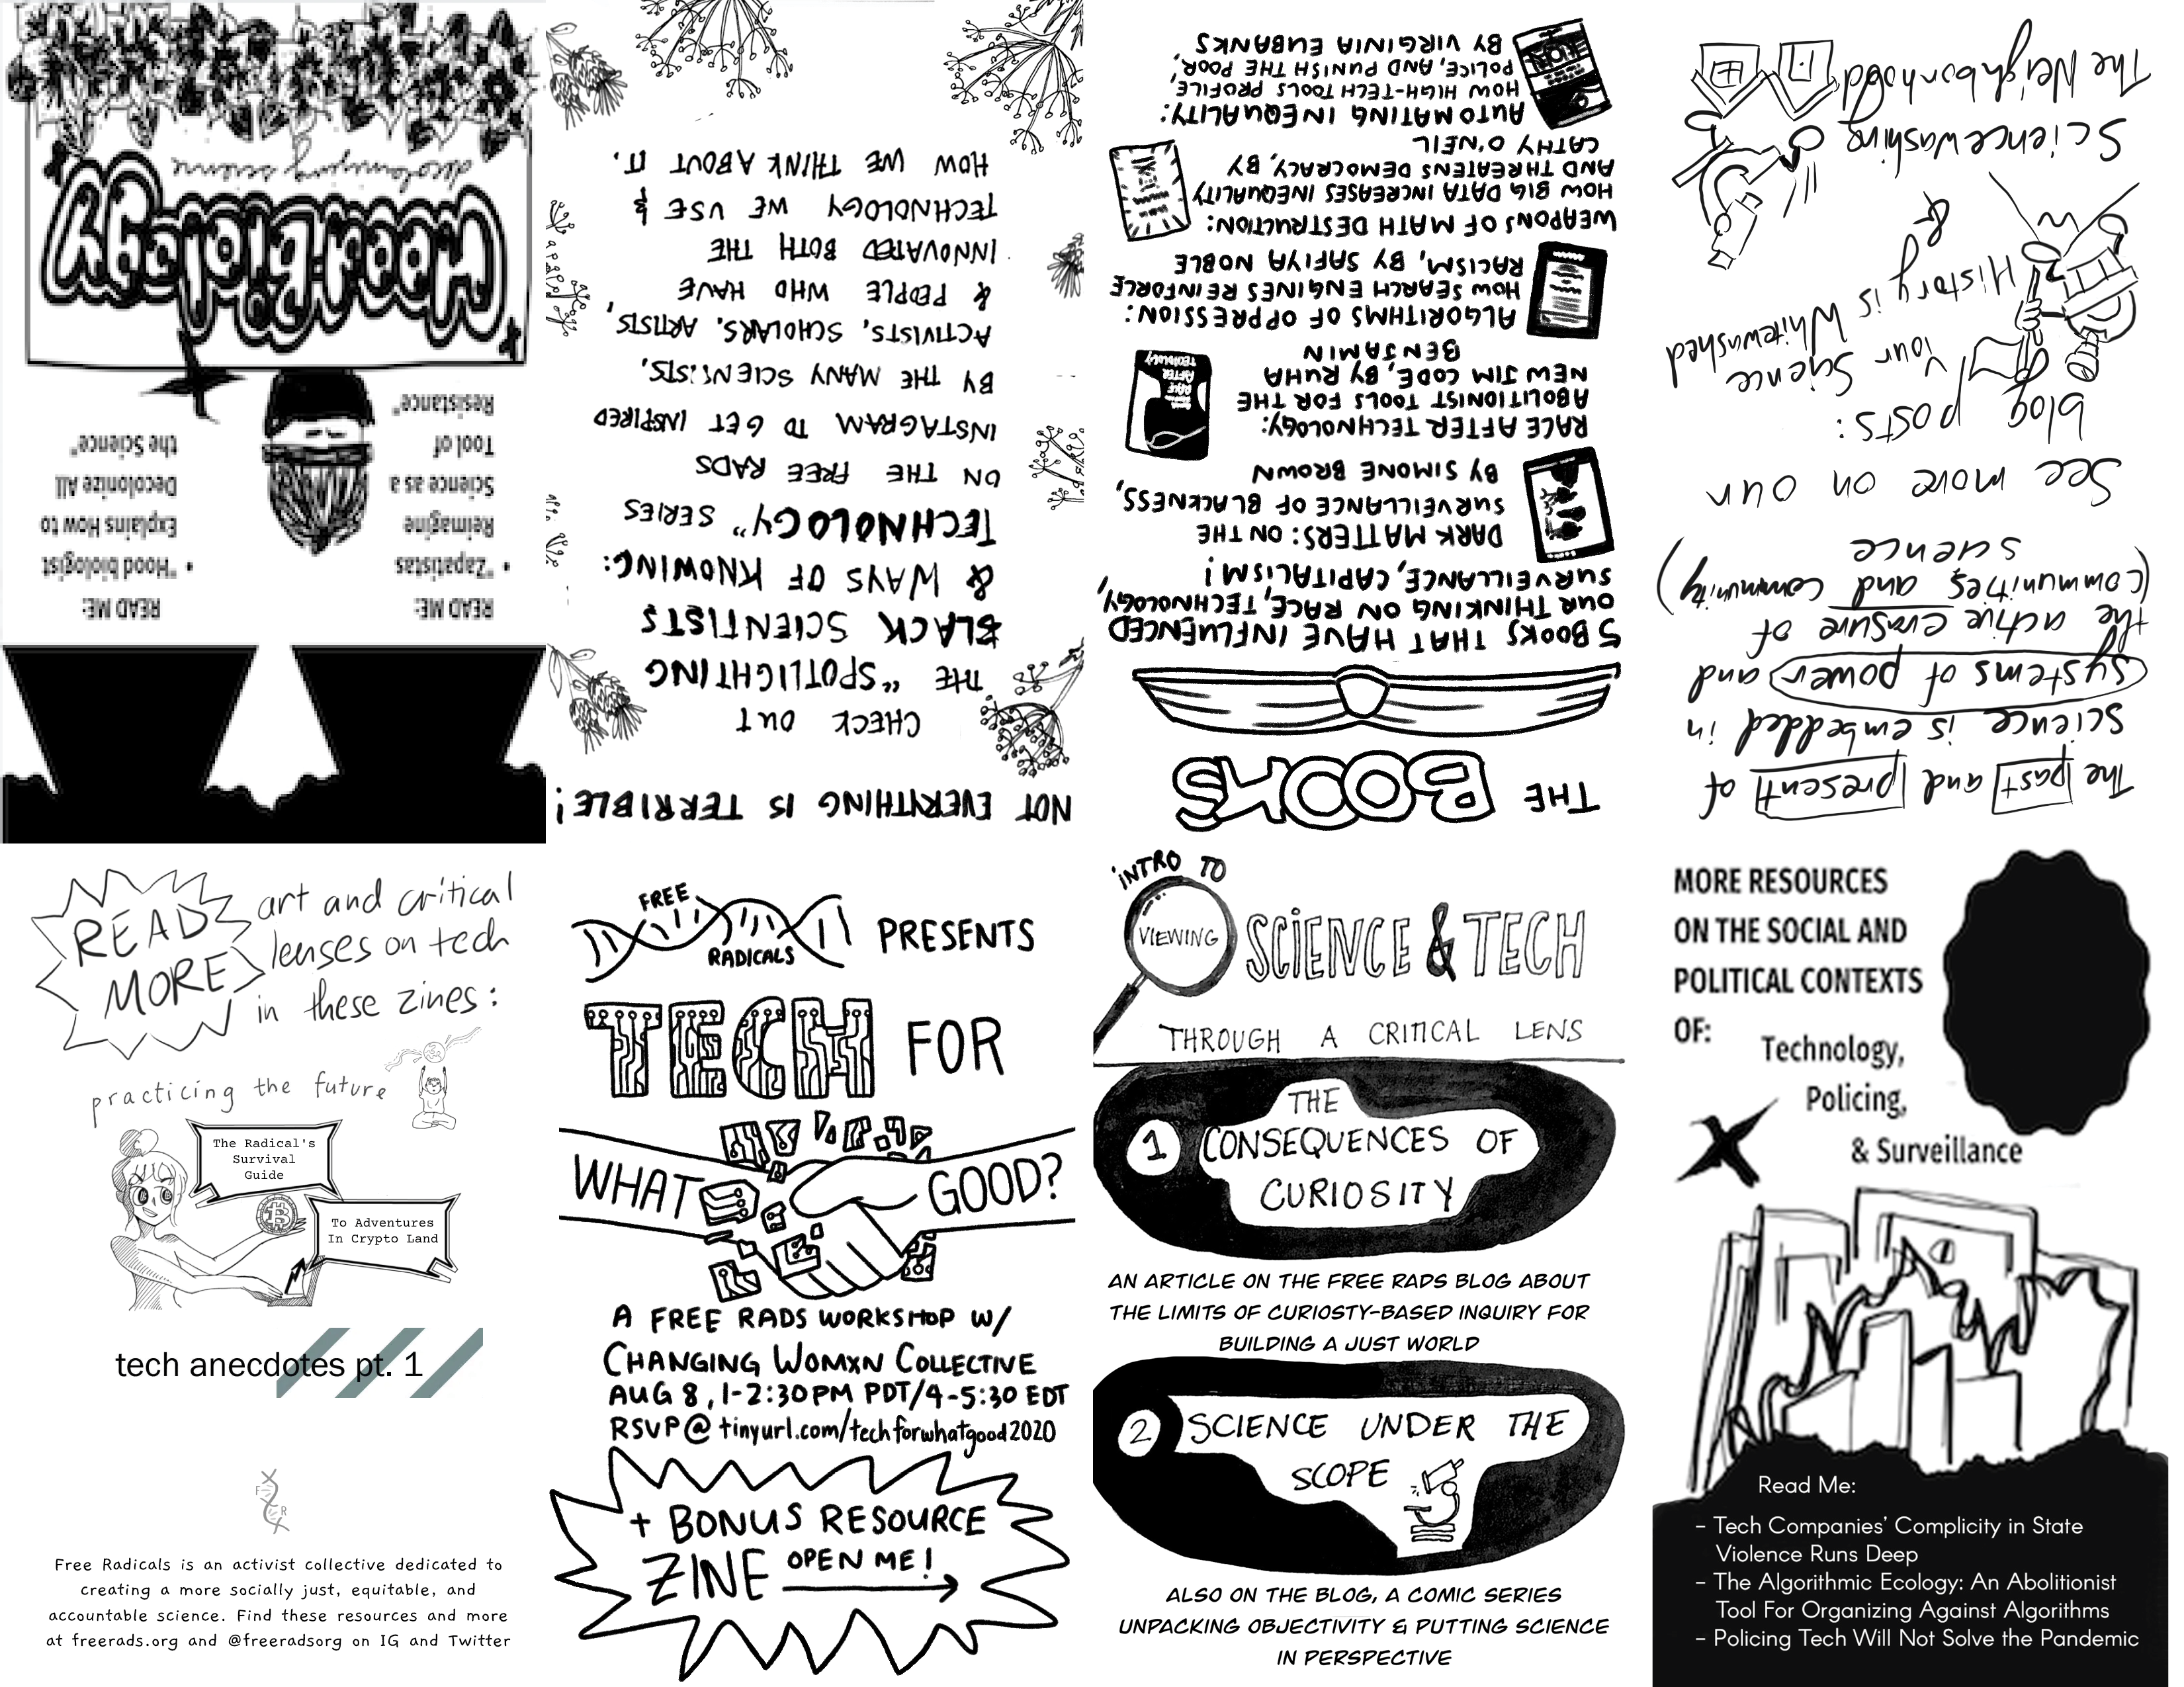 READ ME:
• "Zapatistas
Reimagine
Science as a
Tool of
Resistance"
READ ME:
• "Hood biologist
Explains How to
Decolonize All
the Science"
Hood Biology
decolonizing science
NOT EVERYTHING IS TERRIBLE!
CHECK OUT
THE "SPOTLIGHTING
BLACK SCIENTISTS
& WAYS OF KNOWING:
TECHNOLOGY" SERIES
ON THE FREE RADS
INSTAGRAM TO GET INSPIRED
BY THE MANY SCIENTISTS,
ACTIVISTS, SCHOLARS, ARTISTS,
& PEOPLE WHO HAVE
INNOVATED BOTH THE
TECHNOLOGY WE USE &
HOW WE THINK ABOUT IT.
THE BOOKS
5 BOOKS THAT HAVE INFLUENCED
OUR THINKING ON RACE, TECHNOLOGY,
SURVEILLANCE, CAPITALISM!
DARK MATTERS: ON THE
SURVEILLANCE OF BLACKNESS,
BY SIMONE BROWN
RACE AFTER TECHNOLOGY:
ABOLITIONIST TOOLS FOR THE
NEW JIM CODE, BY RUHA
BENJAMIN
ALGORITHMS OF OPPRESSION:
HOW SEARCH ENGINES REINFORCE
RACISM, BY SAFIYA NOBLE
WEAPONS OF MATH DESTRUCTION:
HOW BIG DATA INCREASES INEQUALITY
AND THREATENS DEMOCRACY, BY
CATHY O'NEIL
AUTOMATING INEQUALITY:
HOW HIGH-TECH TOOLS PROFILE,
POLICE, AND PUNISH THE POOR,
BY VIRGINIA EUBANKS
The past and present of
science is embedded in
systems of power and
the active erasure of
(communities and community)
science
See more on our
blog posts:
Your Science
History is Whitewashed
&
Sciencewashing
The Neighborhood
READ
MORE
art and critical
lenses on tech
in these zines:
practicing the future
The Radical's
Survival
Guide
To Adventures
In Crypto Land
tech anecdotes pt. 1
F
R
Free Radicals is an activist collective dedicated to
creating a more socially just, equitable, and
accountable science. Find these resources and more
at freerads.org and @freeradsorg on IG and Twitter
FREE
RADICALS
PRESENTS
TECH FOR
WHAT GOOD?
A FREE RADS WORKSHOP W/
CHANGING WOMXN COLLECTIVE
AUG 8, 1-2:30PM PDT/4-5:30 EDT
RSVP @ tinyurl.com/techforwhatgood2020
+ BONUS RESOURCE
ZINE OPEN ME!
INTRO TO
VIEWING
SCIENCE & TECH
THROUGH A CRITICAL LENS
1
THE
CONSEQUENCES OF
CURIOSITY
AN ARTICLE ON THE FREE RADS BLOG ABOUT
THE LIMITS OF CURIOSTY-BASED INQUIRY FOR
BUILDING A JUST WORLD
2
SCIENCE UNDER THE
SCOPE
ALSO ON THE BLOG, A COMIC SERIES
UNPACKING OBJECTIVITY & PUTTING SCIENCE
IN PERSPECTIVE
MORE RESOURCES
ON THE SOCIAL AND
POLITICAL CONTEXTS
OF:
Technology,
Policing,
& Surveillance
Read Me:
- Tech Companies' Complicity in State
Violence Runs Deep
- The Algorithmic Ecology: An Abolitionist
Tool For Organizing Against Algorithms
- Policing Tech Will Not Solve the Pandemic